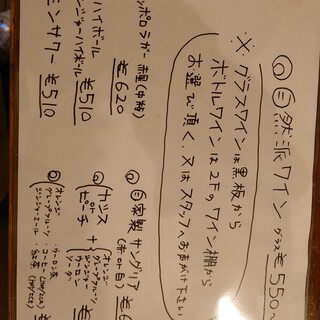 ◎自然派ワイン グラス ¥550〜
※グラスワインは黒板から
ボトルワインは2Fのワイン棚から
お選び頂く、又はスタッフへお声がけ下さい
ポロラガー 赤星(中瓶)
¥620
ハイボール
ンジャーハイボール ¥510
モンサワー ¥510
◎自家製サングリア
(赤or白) ¥6
◎カシス
or
ピーチ
+
オレンジ
グレープフルーツ
ジンジャー
ウーロン
ソーダ
¥
◎オレンジ
グレープフルーツ
ジンジャーエール
・ウーロン茶
・コーヒー(HOT/ICE)
・紅茶(HOT/ICE)
¥